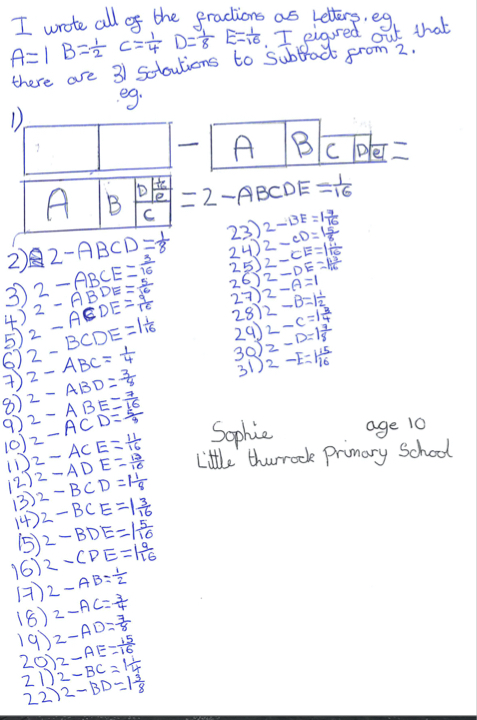 I wrote all of the fractions as Letters. eg
A=1 B=1/2 C=1/4 D=1/8 E=1/16. I figured out that
there are 31 Soloutions to Subtract from 2.
eg.
1)
− A B C D e =
A B D 1/16 e C = 2-ABCDE = 1/16
2) 2-ABCD = 1/8
3) 2-ABCE = 3/16
4) 2-ABDE = 5/16
5) 2-ACDE = 9/16
6) 2-BCDE = 1 1/16
7) 2-ABC = 1/4
8) 2-ABD = 3/8
9) 2-ABE = 7/16
10) 2-ACD = 5/8
11) 2-ACE = 11/16
12) 2-ADE = 13/16
13) 2-BCD = 1 1/8
14) 2-BCE = 1 3/16
15) 2-BDE = 1 5/16
16) 2-CDE = 1 9/16
17) 2-AB = 1/2
18) 2-AC = 3/4
19) 2-AD = 7/8
20) 2-AE = 15/16
21) 2-BC = 1 1/4
22) 2-BD = 1 3/8
23) 2-BE = 1 7/16
24) 2-CD = 1 5/8
25) 2-CE = 1 11/16
26) 2-DE = 1 13/16
27) 2-A = 1
28) 2-B = 1 1/2
29) 2-C = 1 3/4
30) 2-D = 1 7/8
31) 2-E = 1 15/16
Sophie age 10
Little thurrock Primary School